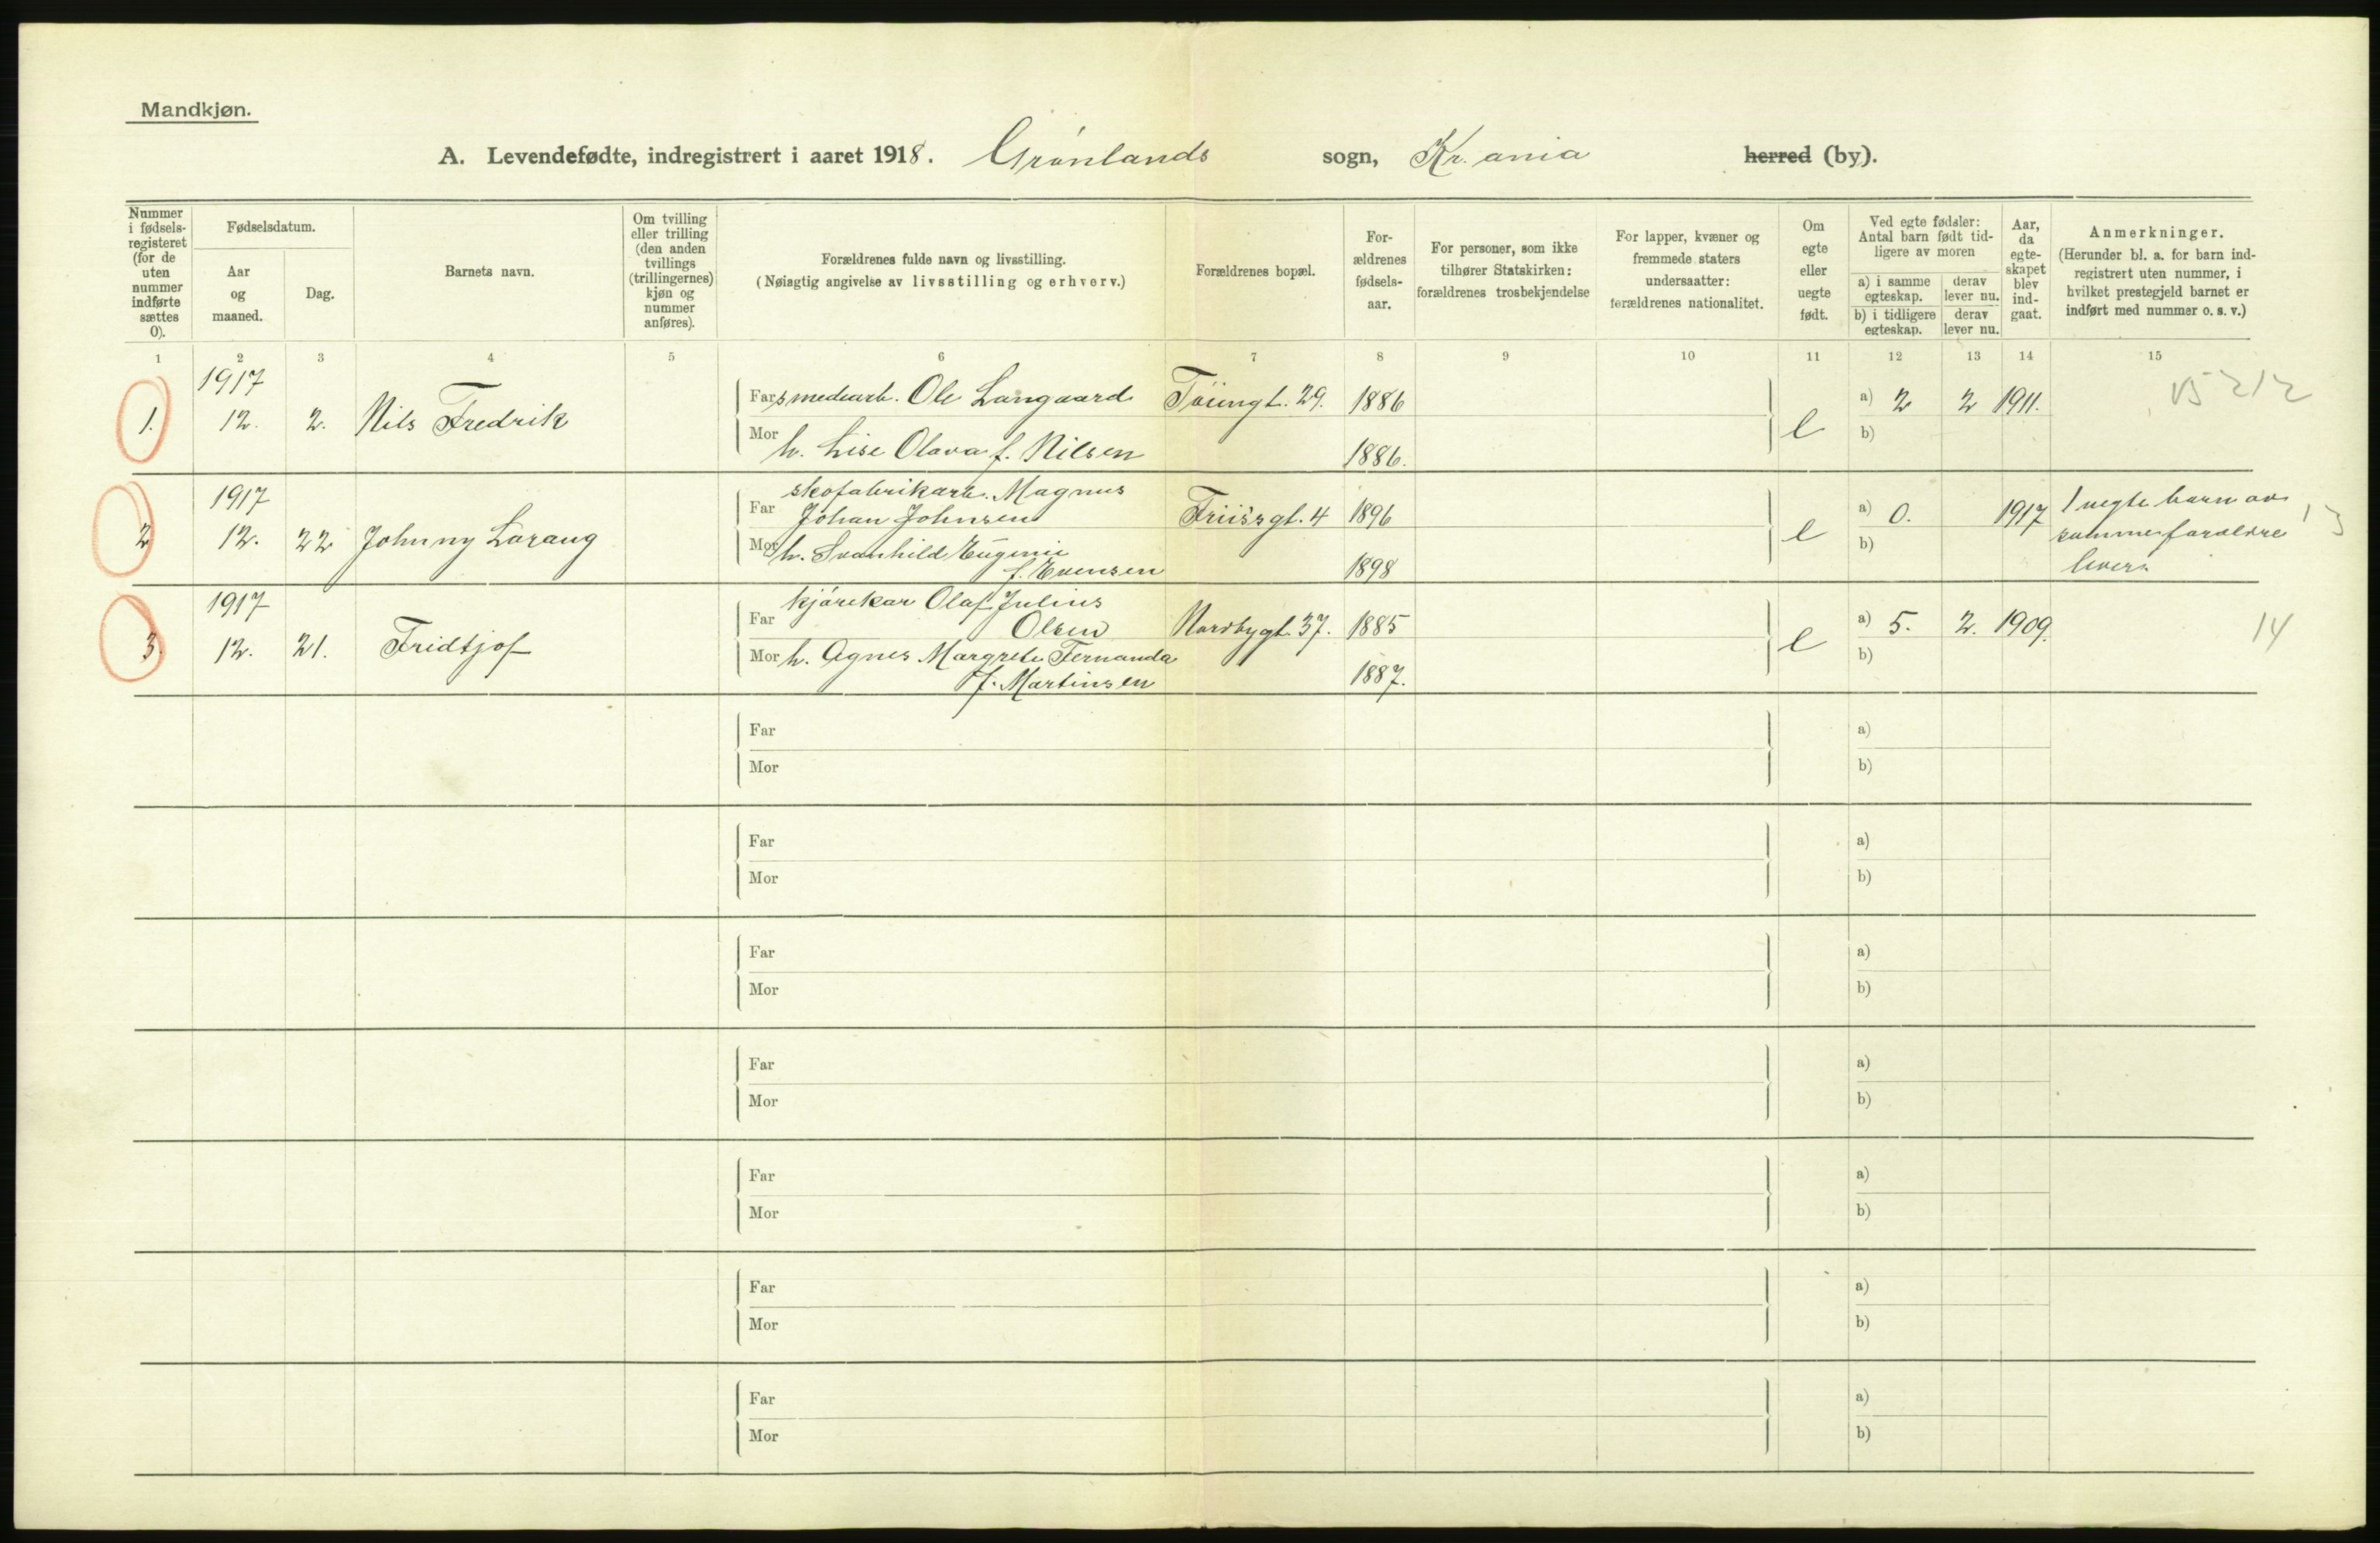 Mandkjøn.
A. Levendefødte, indregistrert i aaret 1918. Grønlands sogn, Kr.ania herred (by).
Nummer i fødsels-registeret (for de uten nummer indførte sættes 0).
Fødselsdatum.
Aar og maaned.
Dag.
Barnets navn.
Om tvilling eller trilling (den anden tvillings (trillingernes) kjøn og nummer anføres).
Forældrenes fulde navn og livsstilling.
(Nøiagtig angivelse av livsstilling og erhverv.)
Forældrenes bopæl.
For-ældrenes fødsels-aar.
For personer, som ikke tilhører Statskirken: forældrenes trosbekjendelse
For lapper, kvæner og fremmede staters undersaatter: forældrenes nationalitet.
Om egte eller uegte født.
Ved egte fødsler: Antal barn født tid-ligere av moren
a) i samme egteskap.
derav lever nu.
b) i tidligere egteskap.
derav lever nu.
Aar, da egte-skapet blev ind-gaat.
Anmerkninger.
(Herunder bl. a. for barn ind-registrert uten nummer, i hvilket prestegjeld barnet er indført med nummer o. s. v.)
1 2 3 4 5 6 7 8 9 10 11 12 13 14 15
1917
1. 12. 2. Nils Fredrik
Far smedearb. Ole Langaard Tøiengt. 29. 1886
Mor h. Lise Olava f. Nilsen 1886.
e a) 2 2 1911.
b)
1917
2 12. 22 Johnny Lorang
skofabrikarb. Magnus
Far Johan Johnsen Friisgt. 4 1896
Mor h. Svanhild Eugenie
f. Evensen 1898
e a) 0. 1917
b)
1 uegte barn av
samme foreldre
lever.
1917
3. 12. 21. Fridtjof
kjørekar Olaf Julius
Far Olsen Nordbygt. 37. 1885
Mor h. Agnes Margrete Fernanda
f. Martinsen 1887.
e a) 5. 2. 1909.
b)
14
Far a)
Mor b)
Far a)
Mor b)
Far a)
Mor b)
Far a)
Mor b)
Far a)
Mor b)
Far a)
Mor b)
Far a)
Mor b)